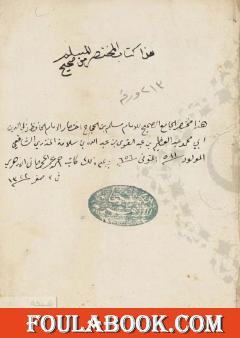 هذا كتاب المختصر من صحيح مسلم
٢١٣ ورقة
هذا مختصر الجامع الصحيح للامام مسلم بن الحجاج اختصار الامام الحافظ زكي الدين
ابي محمد عبد العظيم بن عبد القوي بن عبد الله بن سلامة المنذري الشافعي
المولود ٥٨١ المتوفى ٦٥٦
صفر ١٣٤٢
FOULABOOK.COM